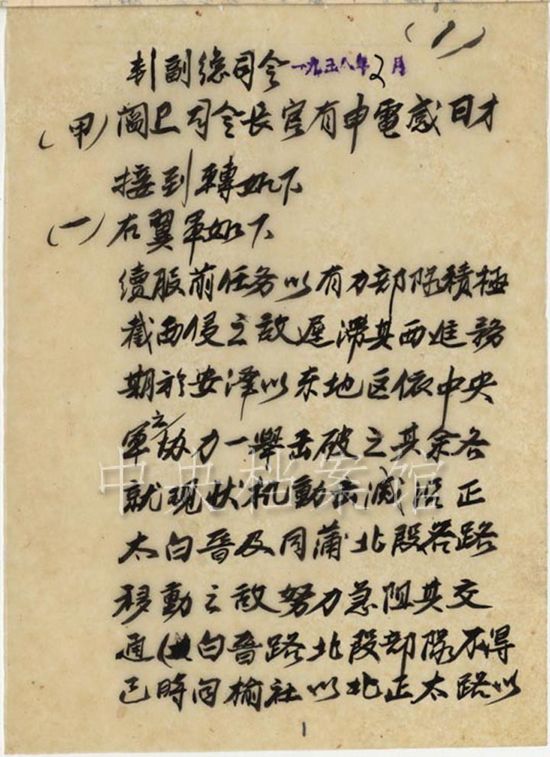 (1)
彭副总司令 一九五八年2月
(甲)阎巴司令长官有申電感日才
接到轉如下
(一)右翼軍如下
續服前任务以有力部隊積極
截西侵之敌遲滞其西進務
期於安澤以东地区依中央
軍之协力一舉击破之其余各
就现状机動击滅沿正
太白晋及同蒲北段各路
移動之敌努力急阻其交
通(白晋路北段部隊不得
已時向榆社以北正太路以
中央档案馆
1